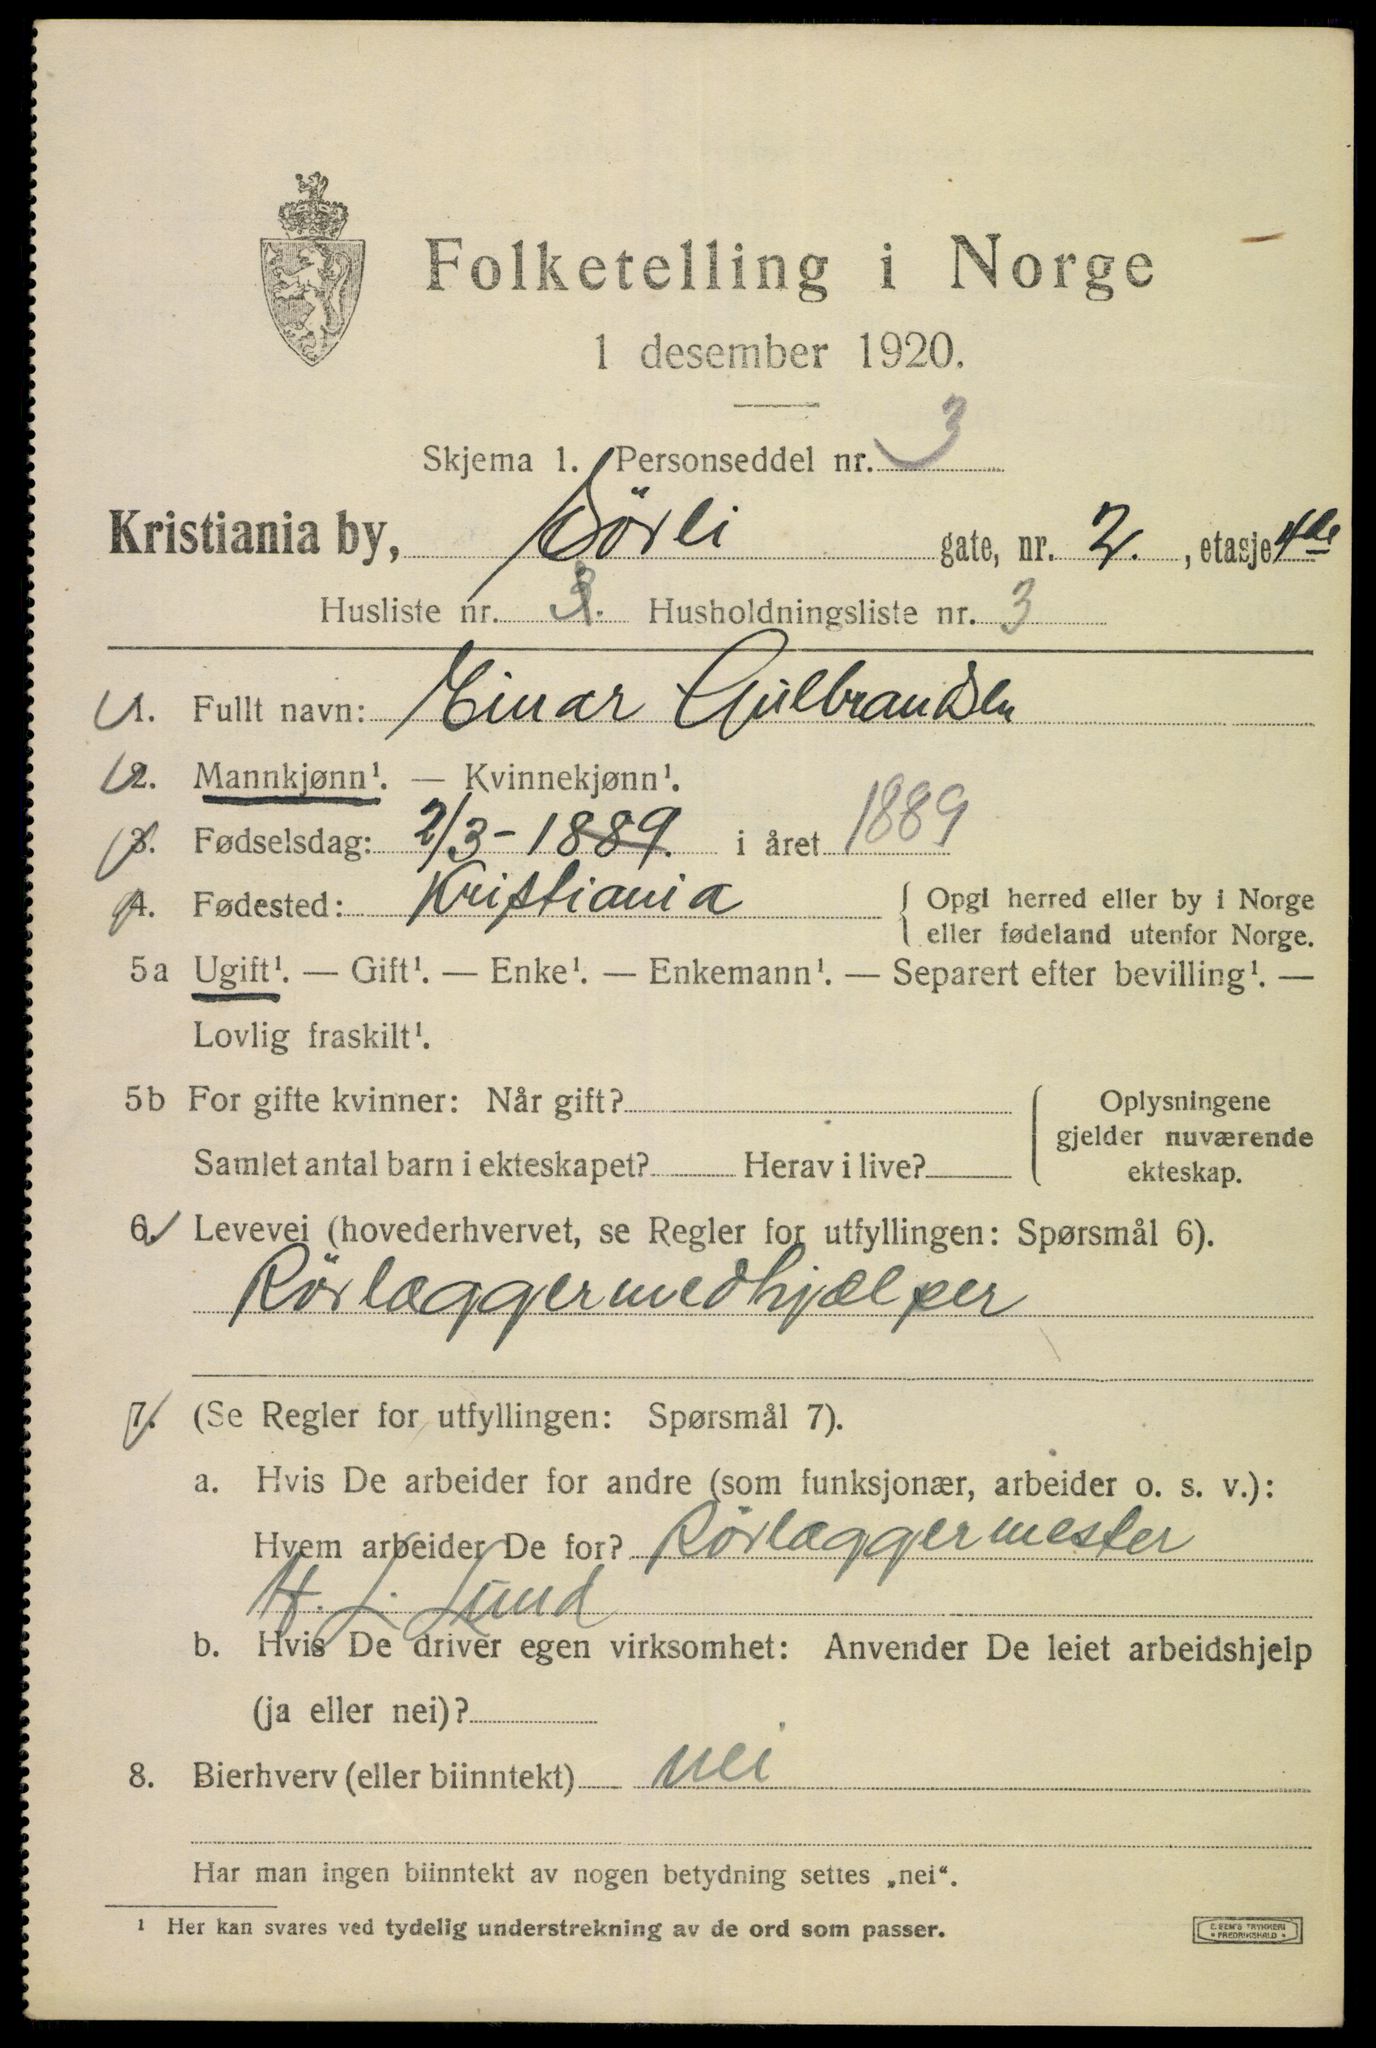 Folketelling i Norge
1 desember 1920.
Skjema 1. Personseddel nr. 3
Kristiania by, Sörli gate, nr. 2. , etasje 4de
Husliste nr. 3. Husholdningsliste nr. 3
1. Fullt navn: Einar Gulbrandsen
2. Mannkjønn¹. — Kvinnekjønn¹.
3. Fødselsdag: 2/3 - 1889. i året 1889
4. Fødested: Kristiania { Opgi herred eller by i Norge
eller fødeland utenfor Norge.
5a Ugift¹. — Gift¹. — Enke¹. — Enkemann¹. — Separert efter bevilling¹. —
Lovlig fraskilt¹.
5b For gifte kvinner: Når gift? { Oplysningene
gjelder nuværende
Samlet antal barn i ekteskapet? Herav i live?
ekteskap.
6. Levevei (hovederhvervet, se Regler for utfyllingen: Spørsmål 6).
Rörlæggermedhjælper
7. (Se Regler for utfyllingen: Spørsmål 7).
a. Hvis De arbeider for andre (som funksjonær, arbeider o. s. v.):
Hvem arbeider De for? Rörlæggermester
H. L. Lund
b. Hvis De driver egen virksomhet: Anvender De leiet arbeidshjelp
(ja eller nei)?
8. Bierhverv (eller biinntekt) nei
Har man ingen biinntekt av nogen betydning settes „nei“.
¹ Her kan svares ved tydelig understrekning av de ord som passer.
E. SEM'S TRYKKERI
FREDRIKSHALD